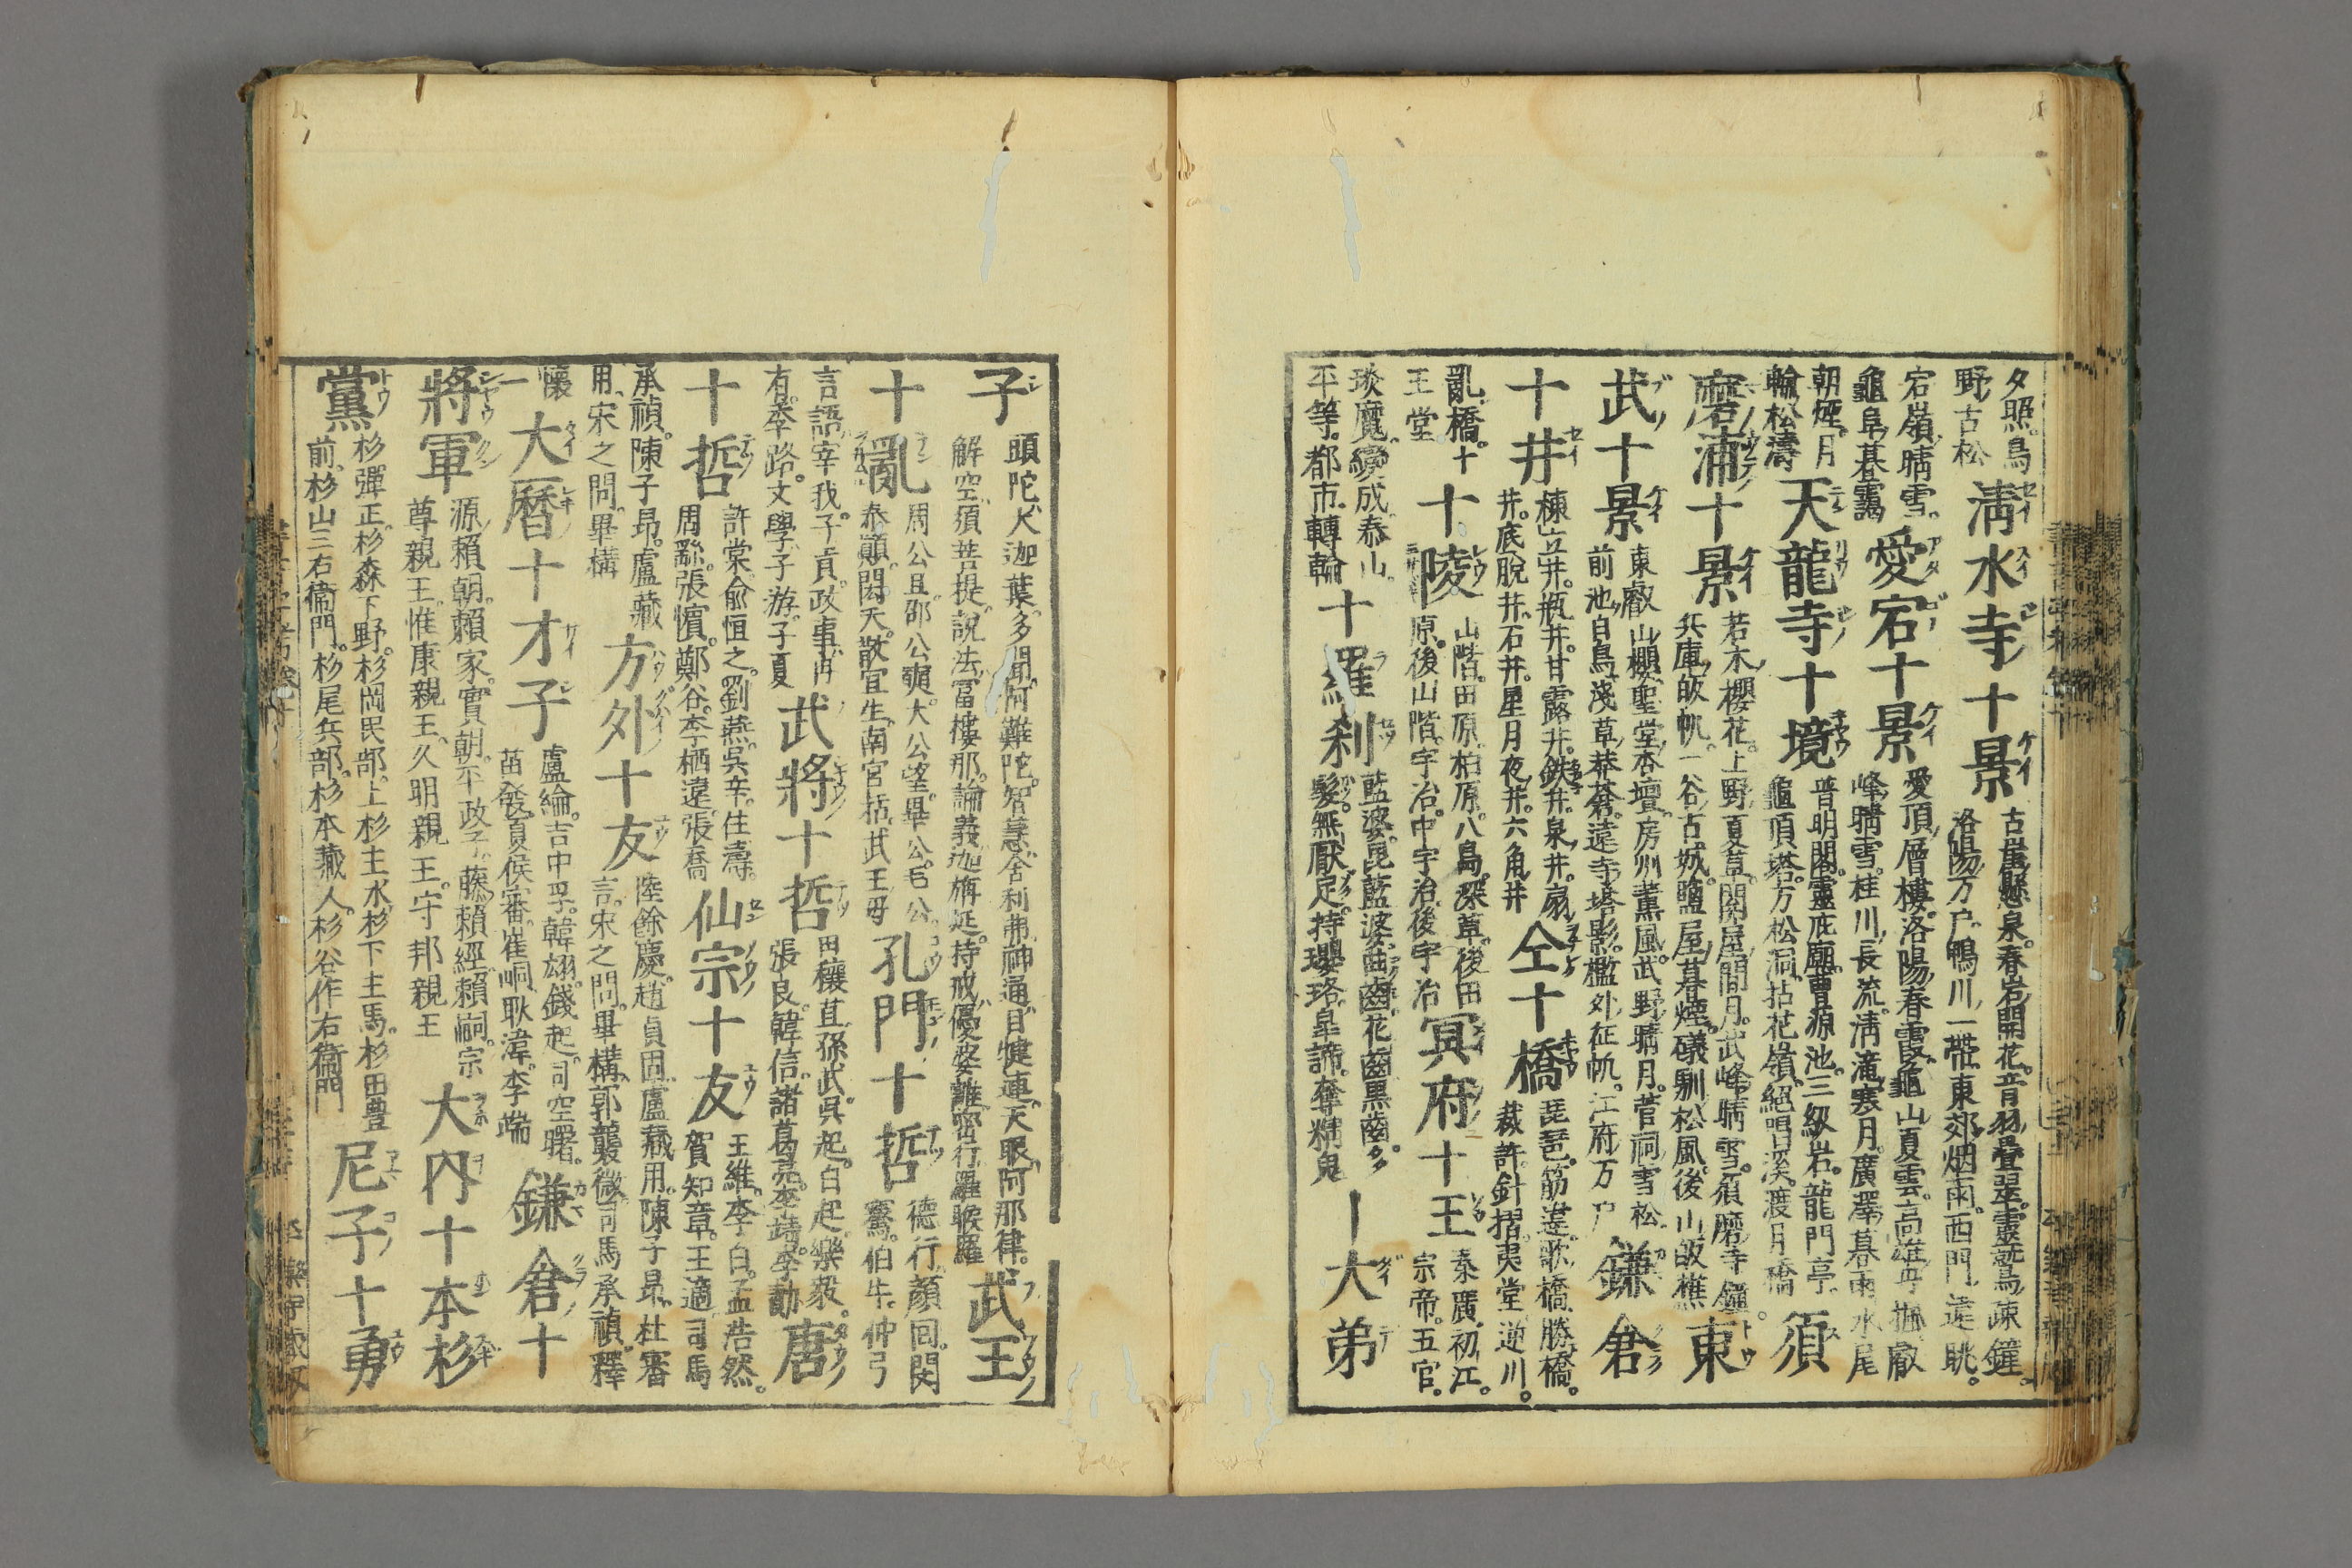 夕照。鳥
野。古松
淸水寺十景
古崖懸泉。春岩開花。音羽疊翠。靈鷲疎鐘。
洛陽万戸。鴨川一帶。東郊烟雨。西門遠眺。
宕嶺晴雪。
龜阜暮靄
愛宕十景
愛頂層樓。洛陽春
龜山夏雲。高雄
叡
峰晴雪。桂川長流。淸滝寒月。廣澤暮雨。水尾
朝煙。月
輪松濤
天龍寺十境
普明閣。靈庇廟。曹源池。三級岩。龍門亭。
龜頂塔。万松洞。拈花嶺。絕唱溪。渡月橋
須
磨浦十景
若木櫻花。上野夏草。関屋間月。武峰晴雪。須磨寺鐘。
兵庫皈帆。一谷古城。鹽屋暮煙。礒馴松風。後山皈樵
東
武十景
東叡山櫻。聖堂杏壇。房州薫風。武野晴月。菅祠雪松。
前池白鳥。淺草
遠寺塔影。檻外征帆。江府万戸
鎌倉
十井
棟立井。瓶井。甘露井。鉄井。泉井。扇
井。底脫井。石井。星月夜井。六角井
仝十橋
琵琶。筋違。歌橋。勝橋。
裁許。針摺。夷堂。逆川。
亂橋。十
王堂
十陵
山階。田原。柏原。八島。深草。後田
原。後山階。宇治。中宇治。後宇治
冥府十王
秦廣。初江。
宗帝。五官。
琰魔。變成。泰山。
平等。都市。轉輪
十羅刹
藍婆。毘藍婆。曲齒。花齒。黒齒。多
髮。無厭足。持瓔珞。皐諦。奪精鬼
｜大弟
子
頭陀。大迦葉。多聞。阿難陀。智慧。舍利弗。神通。目犍連。天眼。阿那律。
解空。須菩提。說法。冨樓那。論義。迦旃延。持戒。優婆離。密行。羅睺羅
武王
十亂
周公旦。邵公奭。大公望。畢公。毛公。
泰顛。閎夭。散宜生。南宮括。武王母
孔門十哲
德行。顏回。閔
騫。伯牛。仲弓
言語。宰我。子貢。政事。冉
有。季路。文學。子游。子夏
武將十哲
田穰苴。孫武。吳起。白起。樂毅。
張良。韓信。諸葛亮。李靖。李勣
唐
十哲
許棠。兪恒之。劇燕。吳宰。任濤。
周繇。張蠙。鄭谷。李栖遠。張喬
仙宗十友
王維。李白。孟浩然。
賀知章。王適。司馬
承禎。陳子昂。盧藏
用。宋之問。畢構
方外十友
陸餘慶。趙貞固。盧藏用。陳子昂。杜審
言。宋之問。畢構。郭襲微。司馬承禎。釋
懷
一
大曆十才子
盧綸。吉中孚。韓翃。錢起。司空曙。
苗發。夏侯審。崔峒。耿湋。李端
鎌倉十
將軍
源賴朝。賴家。實朝。平政子。藤賴經。賴嗣。宗
尊親王。惟康親王。久明親王。守邦親王
大内十本杉
杉彈正。杉森下野。杉岡民部。上杉主水。杉下主馬。杉田豊
前。杉山三右衞門。杉尾兵部。杉本藏人。杉谷作右衞門
尼子十勇
黨